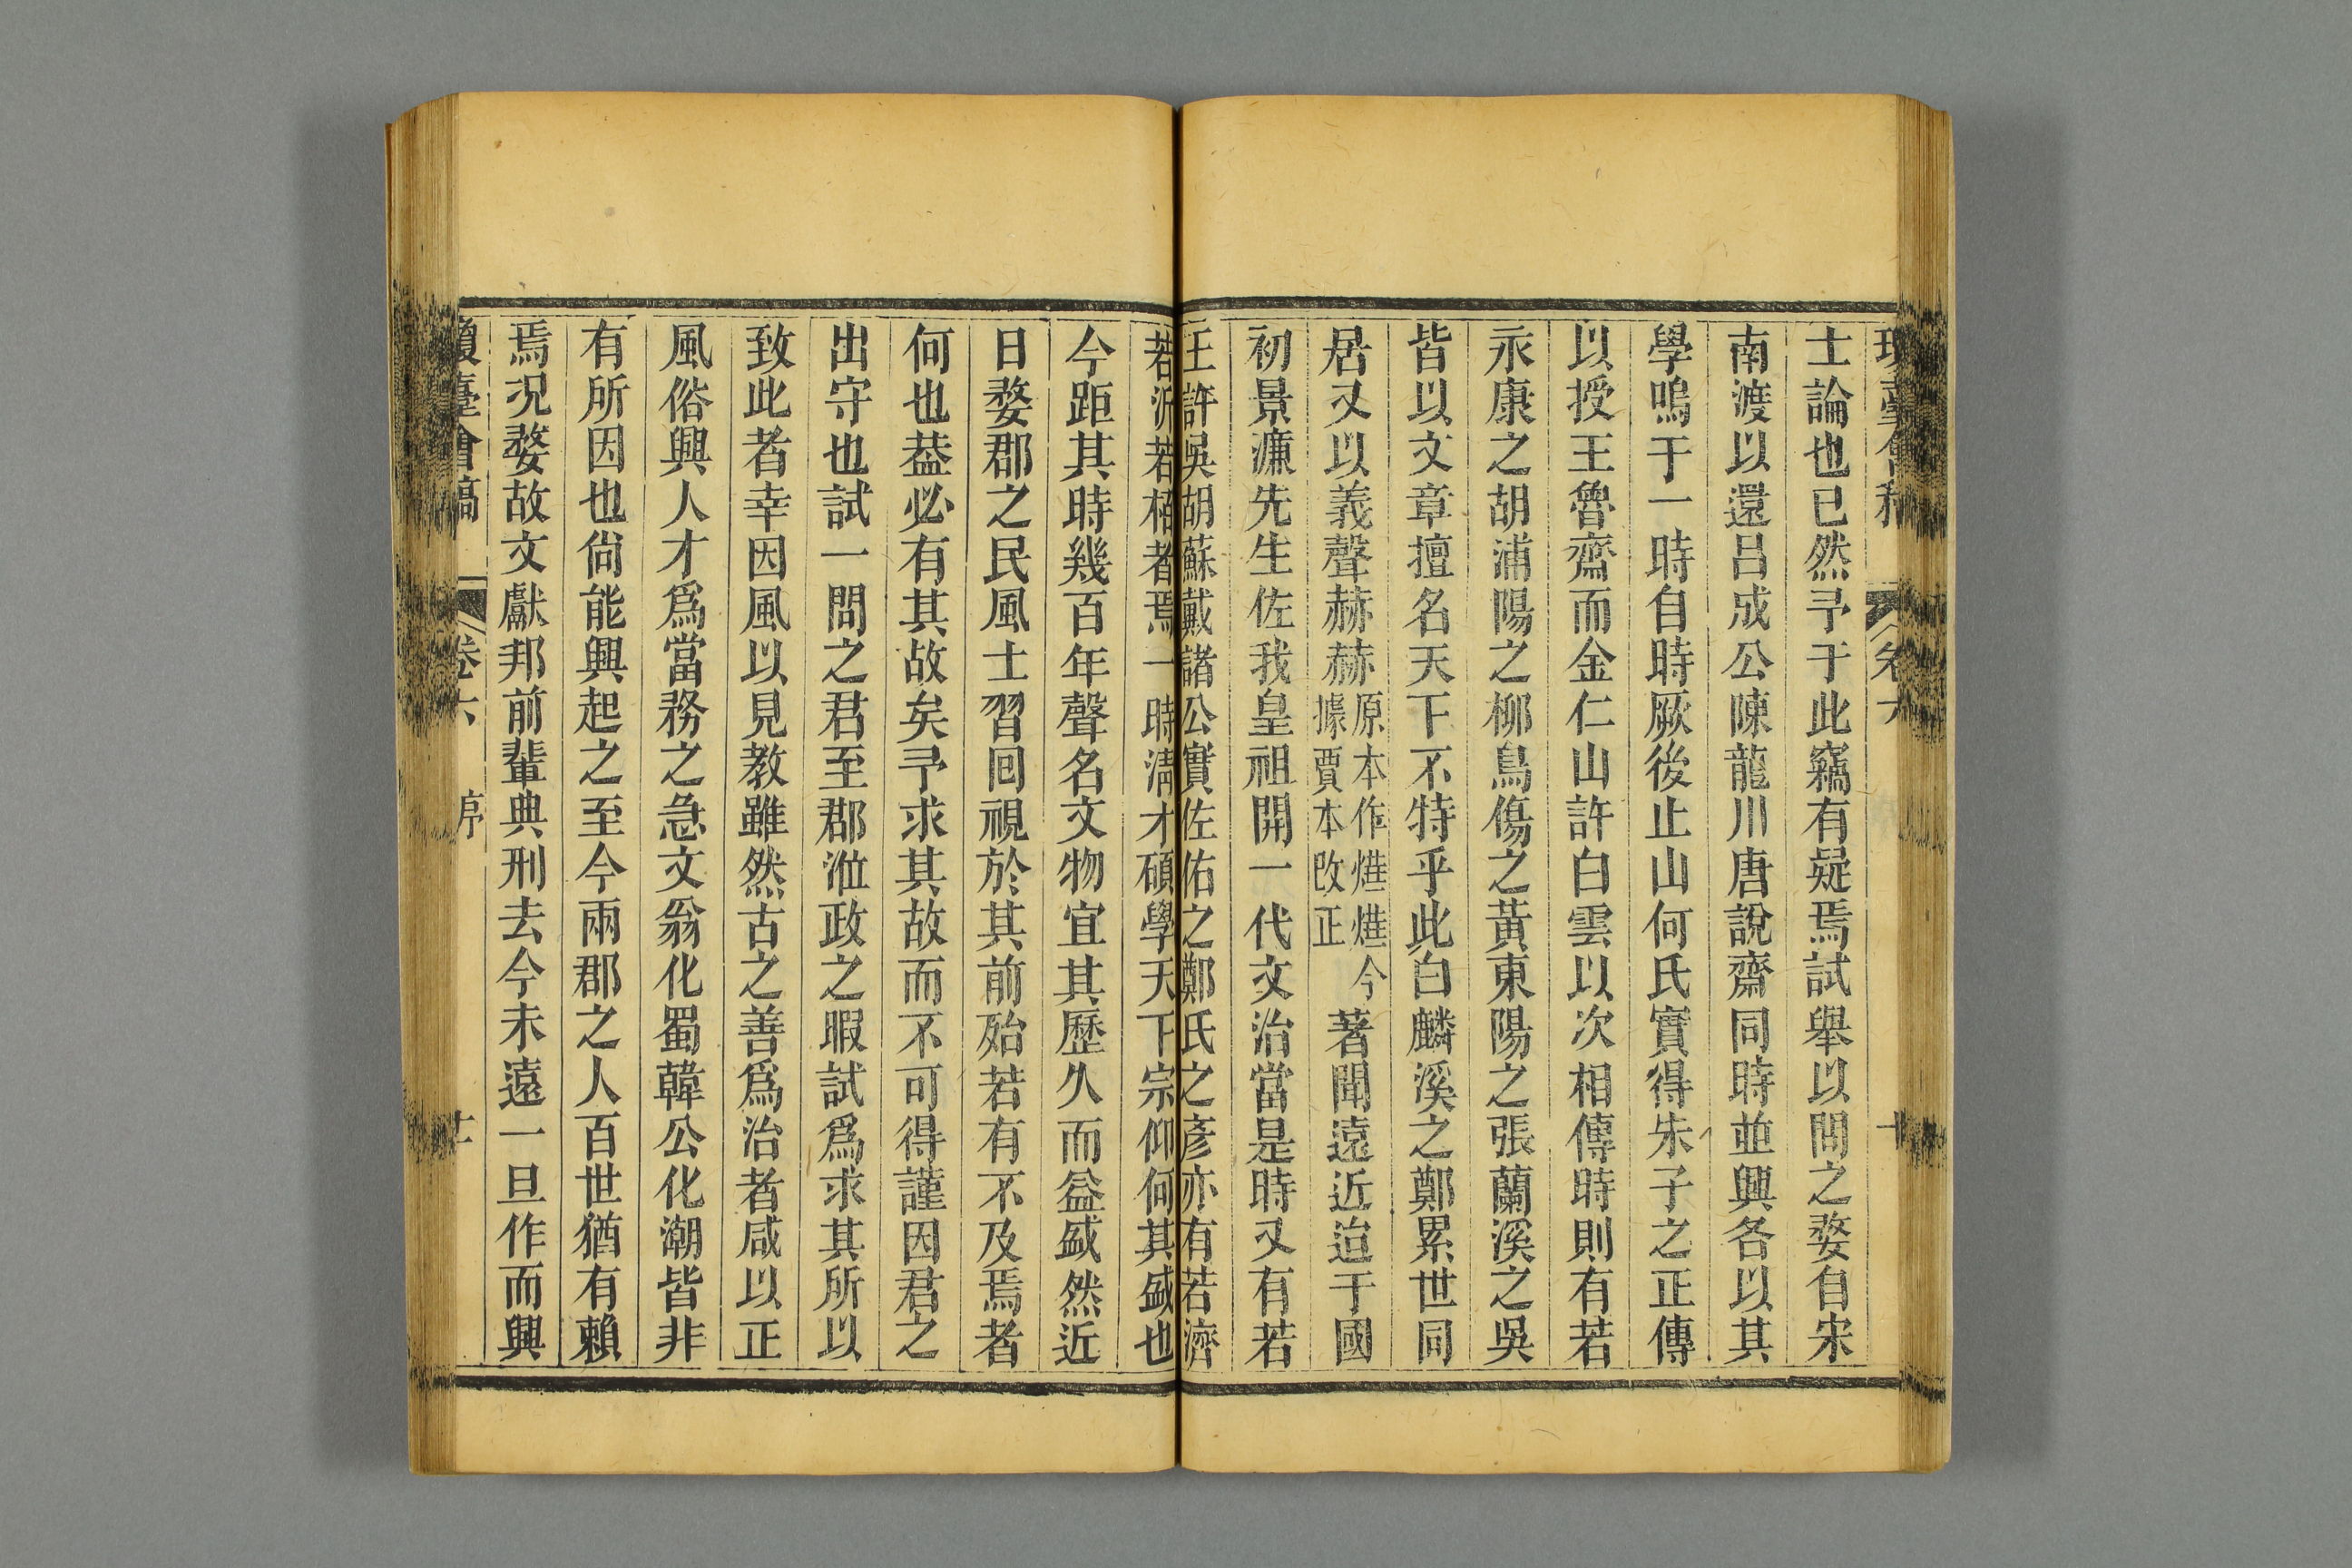 士論也已然予于此竊有疑焉試舉以問之婺自宋
南渡以還呂成公陳龍川唐說齋同時並興各以其
學鳴于一時自時厥後止山何氏實得朱子之正傳
以授王魯齋而金仁山許白雲以次相傳時則有若
永康之胡浦陽之柳烏傷之黃東陽之張蘭溪之吳
皆以文章擅名天下不特乎此白麟溪之鄭累世同
居又以義聲赫赫原本作燁燁今據賈本改正著聞遠近迨于國
初景濂先生佐我皇祖開一代文治當是時又有若
王許吳胡蘇戴諸公實佐佑之鄭氏之彥亦有若濟
若沂若栢者焉一時淸才碩學天下宗仰何其盛也
今距其時幾百年聲名文物宜其歷久而益盛然近
日婺郡之民風士習回視於其前殆若有不及焉者
何也葢必有其故矣予求其故而不可得謹因君之
出守也試一問之君至郡涖政之暇試爲求其所以
致此者幸因風以見教雖然古之善爲治者咸以正
風俗興人才爲當務之急文翁化蜀韓公化潮皆非
有所因也尙能興起之至今兩郡之人百世猶有賴
焉况婺故文獻邦前輩典刑去今未遠一旦作而興
瓊臺會稿 卷六 序